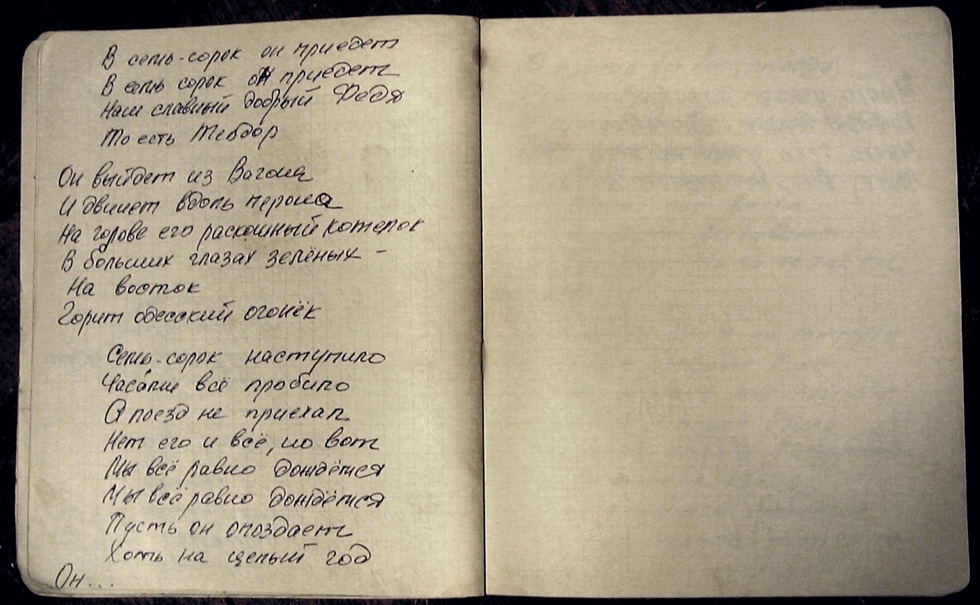 В семь-сорок он приедет
В семь сорок он приедет
Наш славный добрый Федя
То есть Тебдор
Он выйдет из Вагона
И двинет вдоль перона
На голове его раскошный котелок
В больших глазах зелёных –
На восток
Горит одесский огонёк
Семь-сорок наступило
Часами всё пробило
А поезд не приехал
Нет его и всё, но вот
Мы всё равно дождёмся
Мы всё равно дождёмся
Пусть он опоздает
Хоть на целый год
Он...